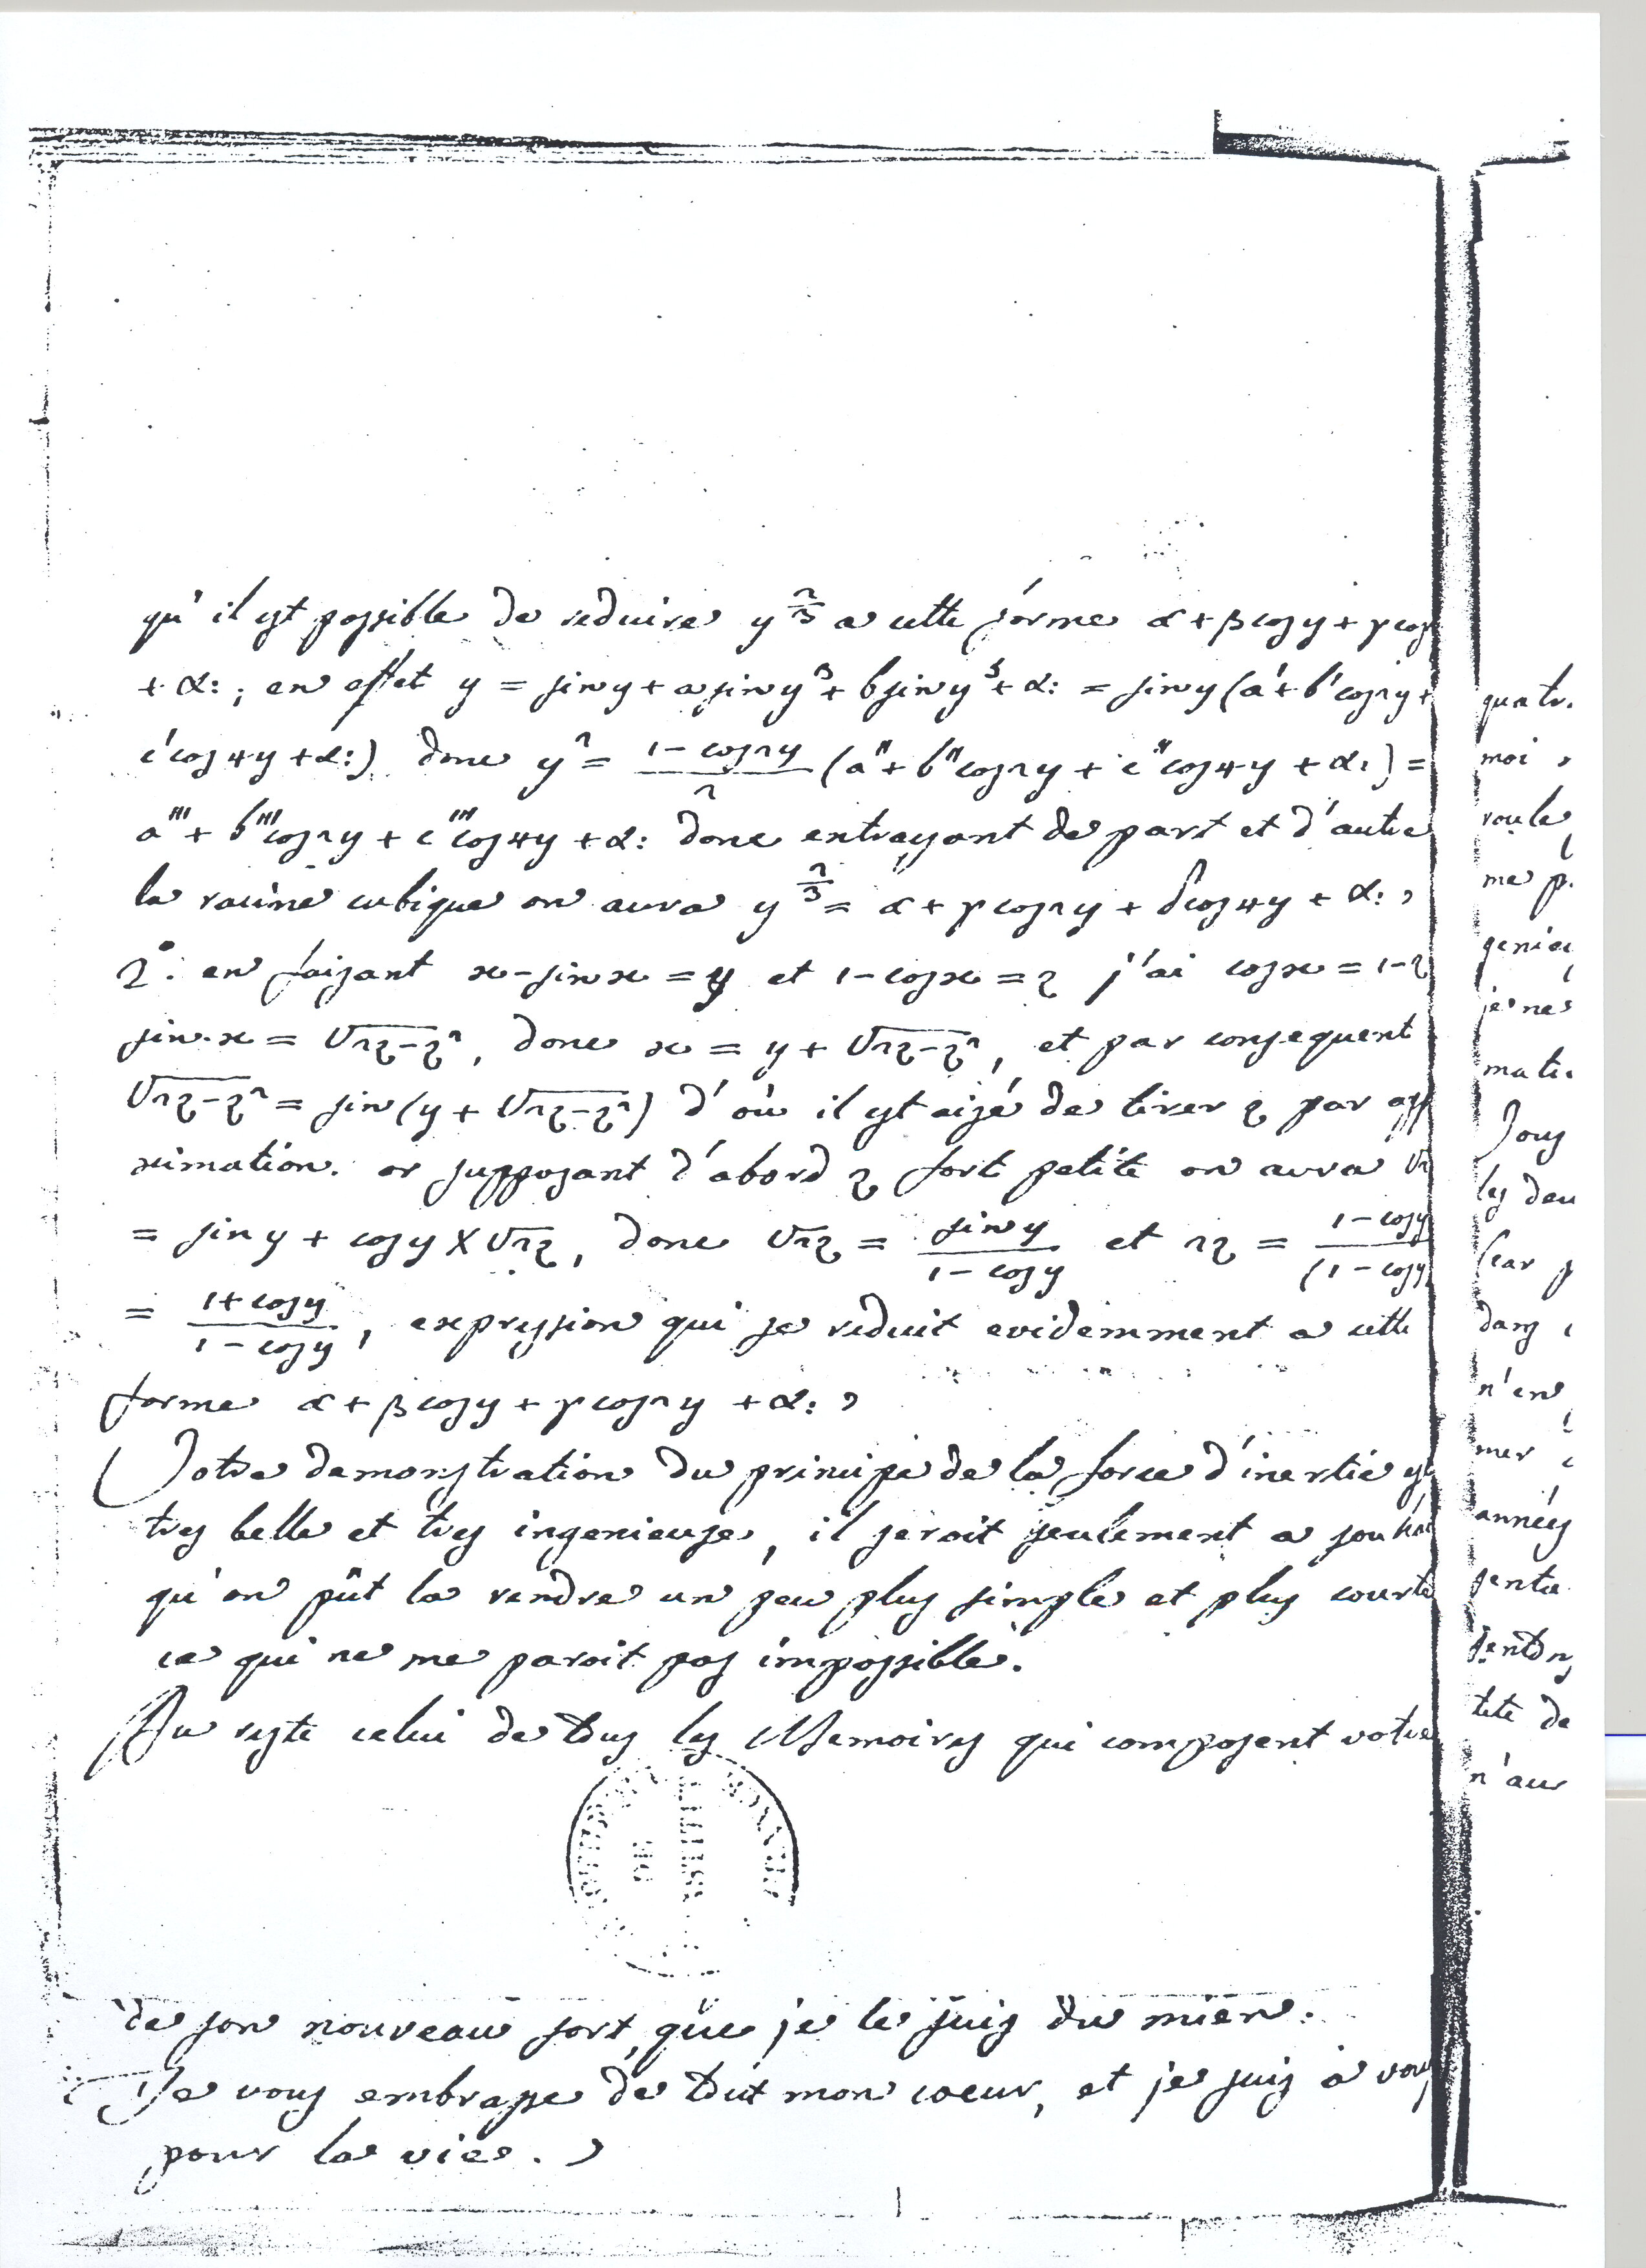 qu'il est possible de reduire y^{2/3} a cette forme α + β cos y + γ cos
+ &: ; en effet y = sin y + a sin y³ + b sin y⁵ + &: = sin y (a' + b' cos 2y +
c' cos 4y + &:) donc y² = \frac{1 - cos 2y}{2} (a'' + b'' cos 2y + c'' cos 4y + &:) =
a''' + b''' cos 2y + c''' cos 4y + &: donc extrayant de part et d'autre
la racine cubique on aura y^{2/3} = α + γ cos 2y + δ cos 4y + &: ,
2°: en faisant x - sin x = y et 1 - cos x = z j'ai cos x = 1 - z
sin. x = √(2z - z²), donc x = y + √(2z - z²), et par consequent
√(2z - z²) = sin (y + √(2z - z²)) d'où il est aisé de tirer z par app
ximation. or supposant d'abord z fort petite on aura √2
= sin y + cos y × √2z, donc √2z = \frac{sin y}{1 - cos y} et 2z = \frac{1 - cos y}{(1 - cos y}
= \frac{1 + cos y}{1 - cos y}, expression qui se reduit evidemment a cette
forme α + β cos y + γ cos 2y + &: ,
Votre demonstration du principe de la force d'inertie est
tres belle et tres ingenieuse, il seroit seulement a souhai
qu'on pût la rendre un peu plus simple et plus courte
ce qui ne me paroit pas impossible.
Au reste celui de tous les Memoires qui composent votre
DE
de son nouveau sort, que je le suis du mien.
Je vous embrasse de tout mon coeur, et je suis a vous
pour la vie.
quatr.
moi
voule
me p.
genie
je ne
mati
Vous
les deu
(car p
dans
n'en
mer
années
sentie
tete de
n'au